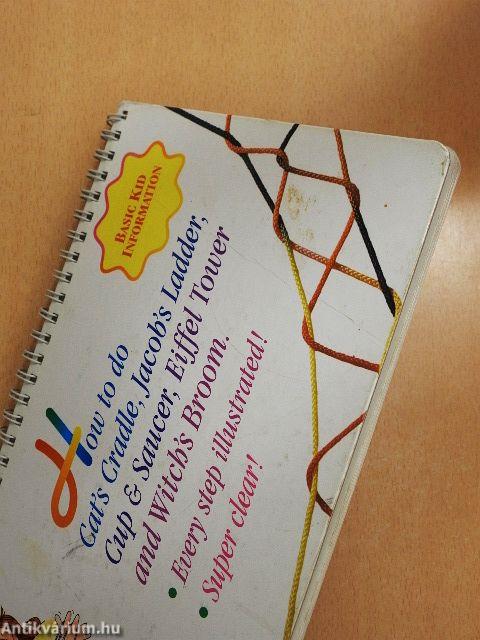 BASIC KID
INFORMATION
How to do
Cat's Cradle, Jacob's Ladder,
Cup & Saucer, Eiffel Tower
and Witch's Broom.
• Every step illustrated!
• Super clear!
Antikvárium.hu